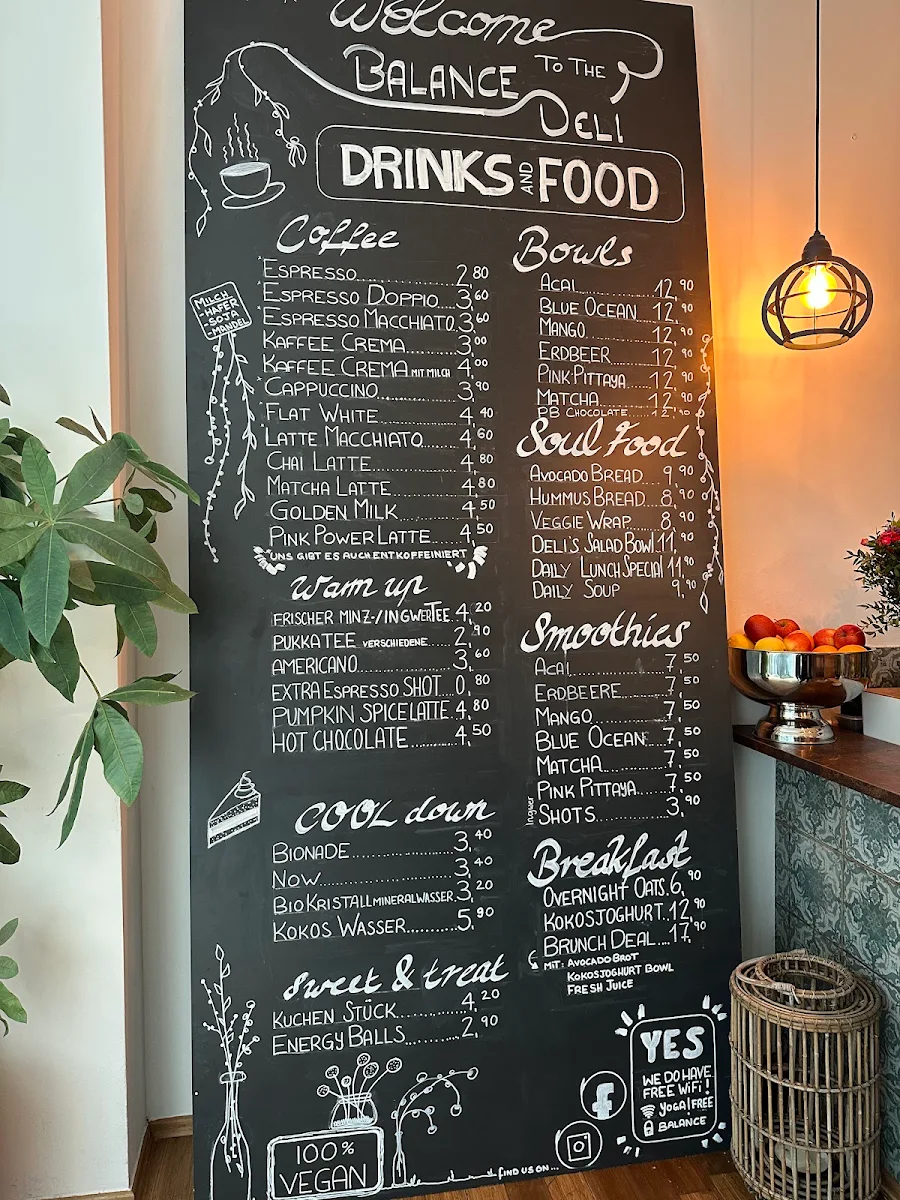 Welcome
To The
Balance
Deli
DRINKS AND FOOD
Coffee
Espresso 2,80
Espresso Doppio 3,60
Espresso Macchiato 3,60
Kaffee Crema 3,00
Kaffee Crema mit Milch 4,00
Cappuccino 3,90
Flat White 4,40
Latte Macchiato 4,60
Chai Latte 4,80
Matcha Latte 4,80
Golden Milk 4,50
Pink Power Latte 4,50
Uns gibt es auch entkoffeiniert
Milch
-Hafer
-Soja
-Mandel
Warm up
Frischer Minz-/Ingwertee 4,20
Pukka Tee verschiedene 2,90
Americano 3,60
Extra Espresso Shot 0,80
Pumpkin Spice Latte 4,80
Hot Chocolate 4,50
COOL down
Bionade 3,40
Now 3,40
Bio Kristall Mineralwasser 3,20
Kokos Wasser 5,90
Sweet & treat
Kuchen Stück 4,20
Energy Balls 2,90
100%
VEGAN
Bowls
Acai 12,90
Blue Ocean 12,90
Mango 12,90
Erdbeer 12,90
Pink Pittaya 12,90
Matcha 12,90
PB Chocolate 12,90
Soul Food
Avocado Bread 9,90
Hummus Bread 8,90
Veggie Wrap 8,90
Deli's Salad Bowl 11,90
Daily Lunch Special 11,90
Daily Soup 9,90
Smoothies
Acai 7,50
Erdbeere 7,50
Mango 7,50
Blue Ocean 7,50
Matcha 7,50
Pink Pittaya 7,50
Ingwer Shots 3,90
Breakfast
Overnight Oats 6,90
Kokosjoghurt 12,90
Brunch Deal 17,90
mit: Avocadobrot
Kokosjoghurt Bowl
Fresh Juice
YES
We do have
free WiFi!
Yoga!Free
Balance
find us on...